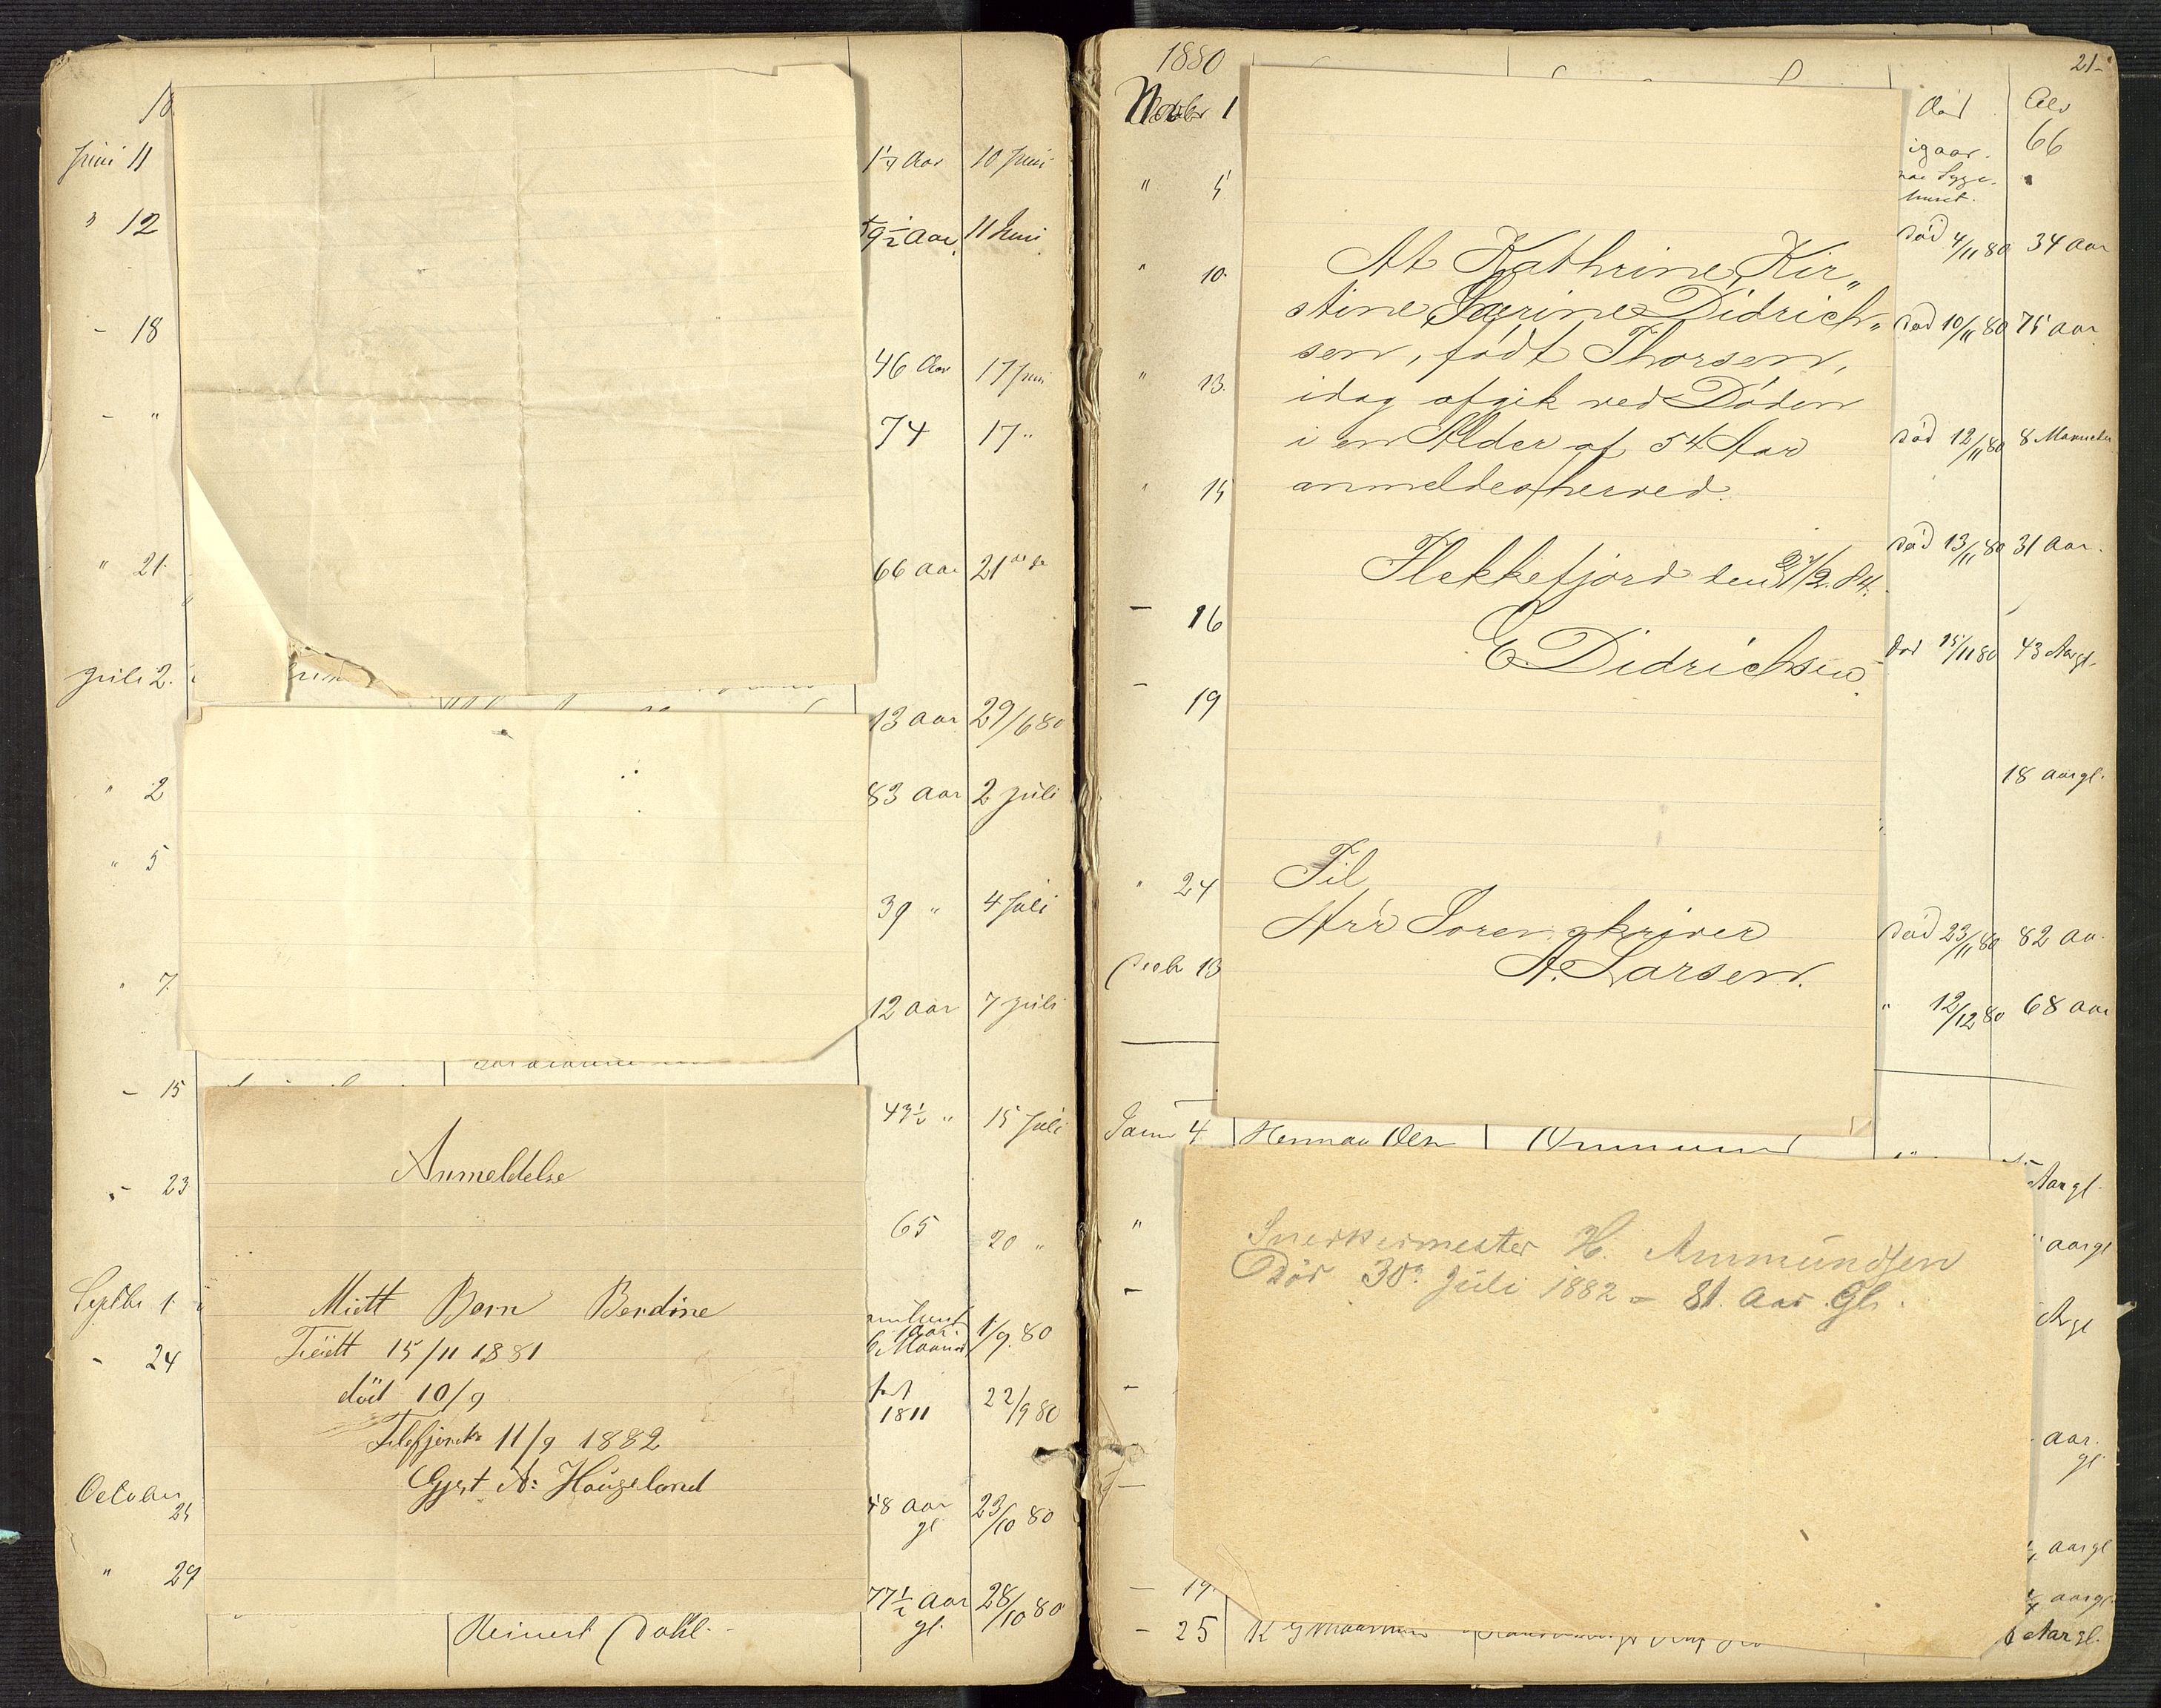 18
Juni 11
1 1/4 Aar 10 Juni
" 12
59 1/2 Aar 11 Juni
- 18
46 Aar 17 Juni
- "
74 17 "
" 21.
66 Aar 21
Juli 2.
13 aar 29/6 80
" 2
83 aar 2 Juli
" 5
39 " 4 Juli
" 7.
12 aar 7 Juli
- 15
43 1/2 " 15 Juli
- 23
65 20 "
Septbr 1.
1/9. 80
- 24
1811 22/9 80
October 25
48 aar gl 23/10 80
" 29
77 1/2 Aar gl. 28/10 80
Reinert Dahl.
Anmeldelse
Mitt Barn Berdine
Fëdt 15/11 1881
död 10/9
11/9 1882
Gjert A: Haugeland
1880
21
Novbr 1
död Alv
igaar. 66
paa Syge-
huset.
" 5
död 4/11 80 34 aar
" 10.
död 10/11 80 75 aar
" 13.
död 12/11 80 8 Maaneder
" 15
död 13/11 80 31 Aar.
- 16
död 15/11 80 43 Aargl.
- 19
18 aargl.
" 24
död 23/11 80 82 aa
Decbr 13
" 12/12 80 68 aar
At Kathrine, Kir„
stine Særine Didrich„
sen, født Thorsen,
idag afgik ved Døden
i en Alder af 54 Aar
anmeldes herved.
Flekkefjord den 27/2. 84.
E. Didrichsen.
Til
Hrr Sorenskriver
A. Larsen.
Janu 4 Herman Olsn
Aargl.
"
aargl
-
Argl
-
aar.
gl
-
Snerkermester H. Ammundsen
Død 30. Juli 1882 = 81. Aar Gl.
aargl
- 19.
aargl
- 25
Aargl.